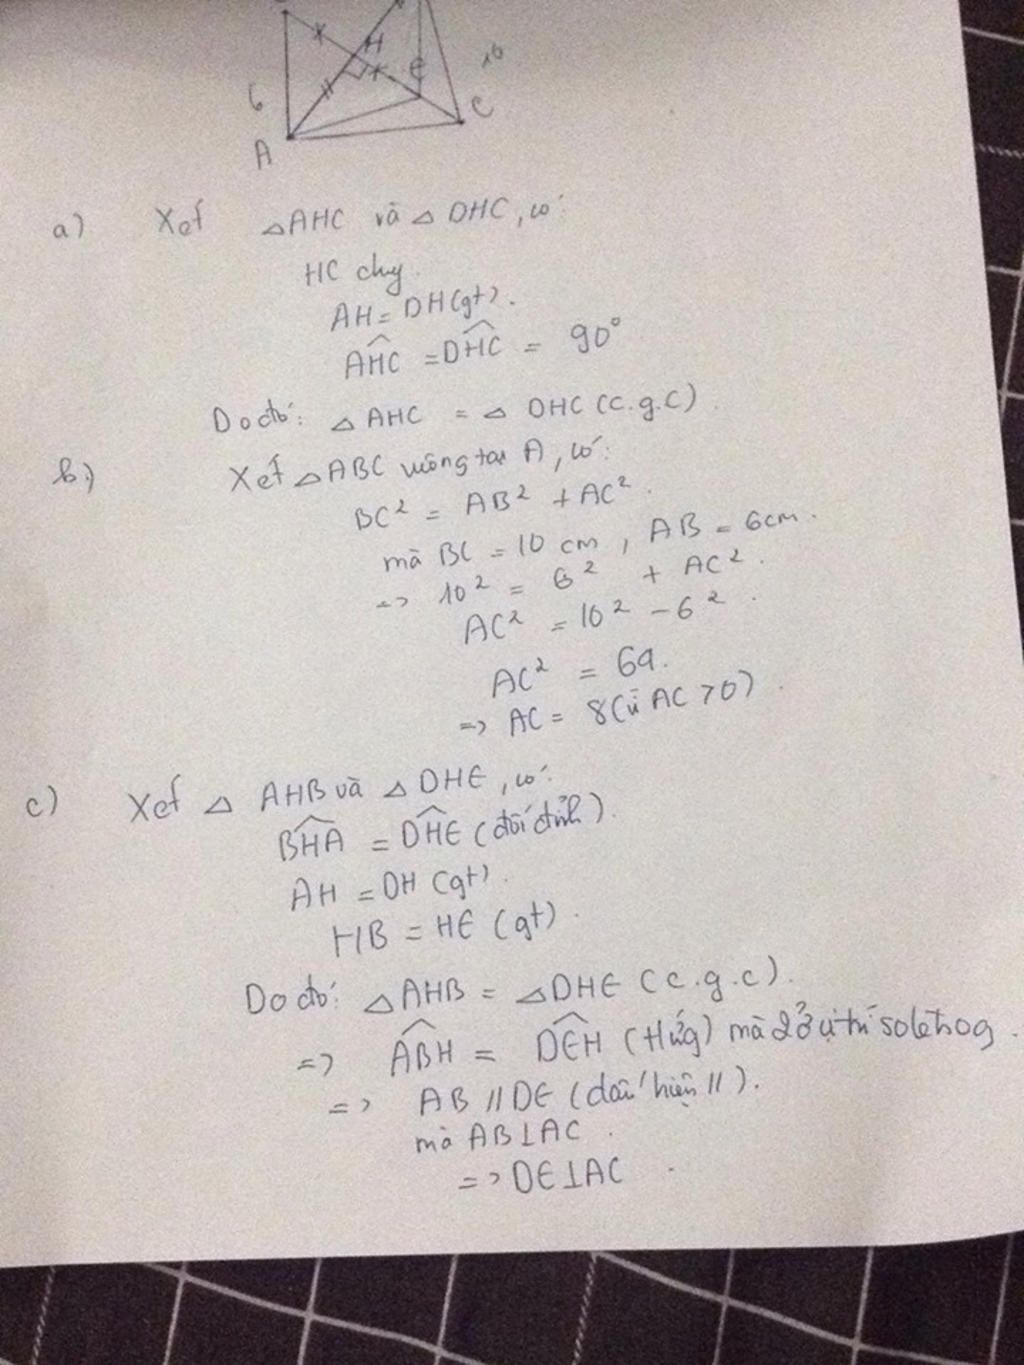 H
E
6
10
A
C
a) Xét △AHC và △DHC, có:
HC chung
AH = DH (gt).
AHC = DHC = 90°
Do đó: △AHC = △DHC (c.g.c)
b.) Xét △ABC vuông tại A, có:
BC² = AB² + AC².
mà BC = 10 cm, AB = 6cm.
=> 10² = 6² + AC².
AC² = 10² - 6².
AC² = 64.
=> AC = 8 (vì AC > 0).
c) Xét △AHB và △DHE, có:
BHA = DHE (đối đỉnh).
AH = DH (gt).
HB = HE (gt).
Do đó: △AHB = △DHE (c.g.c).
=> ABH = DEH (tứng) mà 2 ở vị trí so le trog.
=> AB // DE (dấu hiện //).
mà AB⊥AC.
=> DE⊥AC.